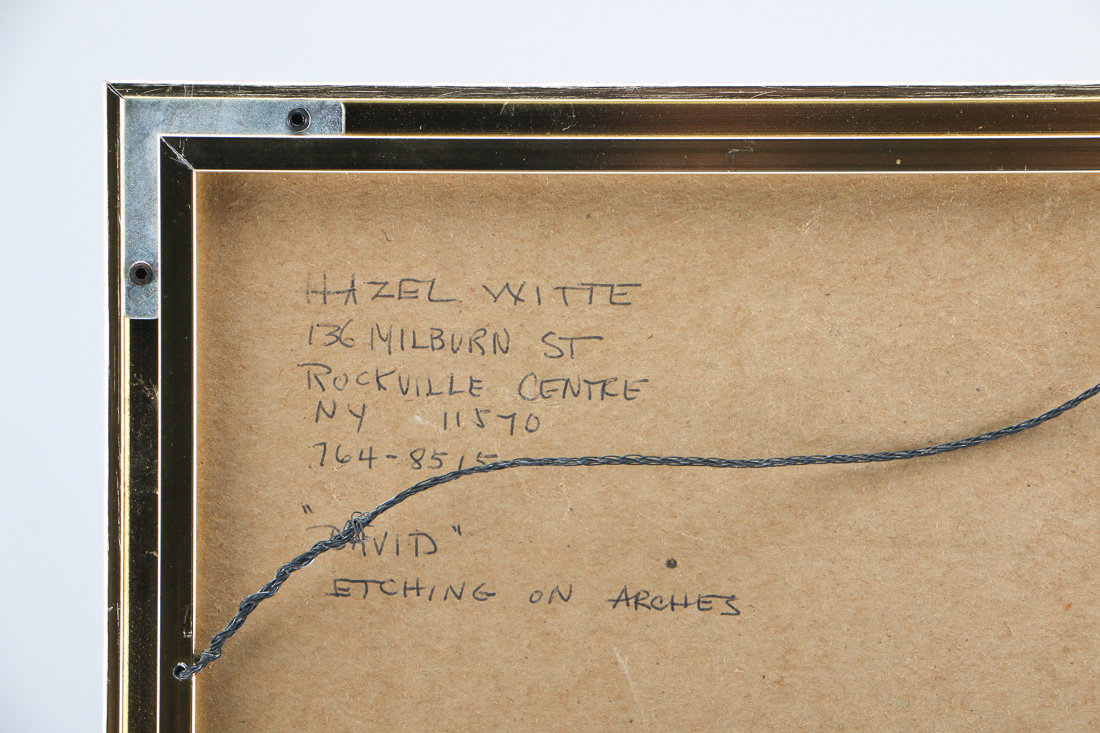 HAZEL WITTE
136 MILBURN ST
ROCKVILLE CENTRE
NY 11570
764-8515
"DAVID"
ETCHING ON ARCHES